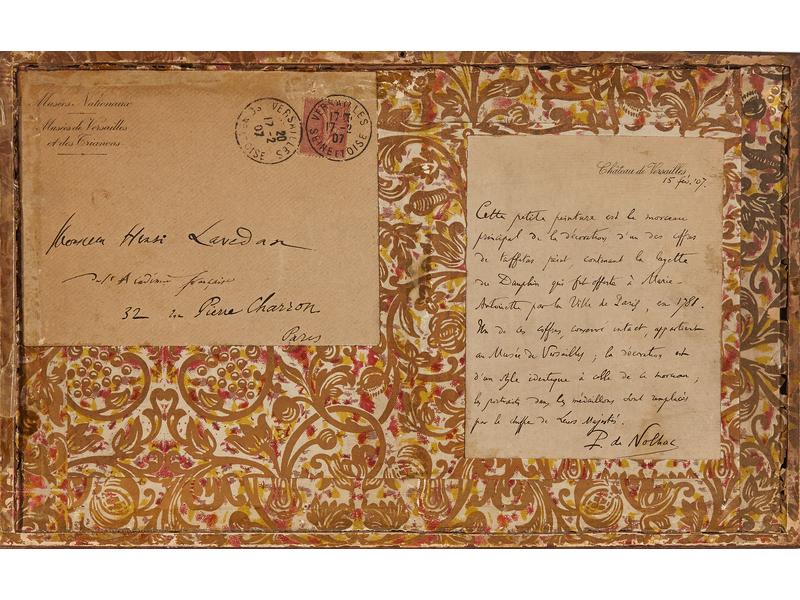 Musées Nationaux
Musées de Versailles
et des Trianons
VERSAILLES
20
17-2
07
OISE
VERSAILLES
17-2
07
SEINE ET OISE
Monsieur Henri Lavedan
de l'Académie française
32 rue Pierre Charron
Paris
Château de Versailles
15 fév. 07.
Cette petite peinture est le morceau
principal de la décoration d'un des coffres
de taffetas peint, contenant la layette
du Dauphin qui fut offerte à Marie-
Antoinette par la Ville de Paris, en 1781.
Un de ces coffres, conservé intact, appartient
au Musée de Versailles ; la décoration est
d'un style identique à celle de ce morceau ;
les portraits dans les médaillons sont remplacés
par le chiffre de Leurs Majestés.
P. de Nolhac